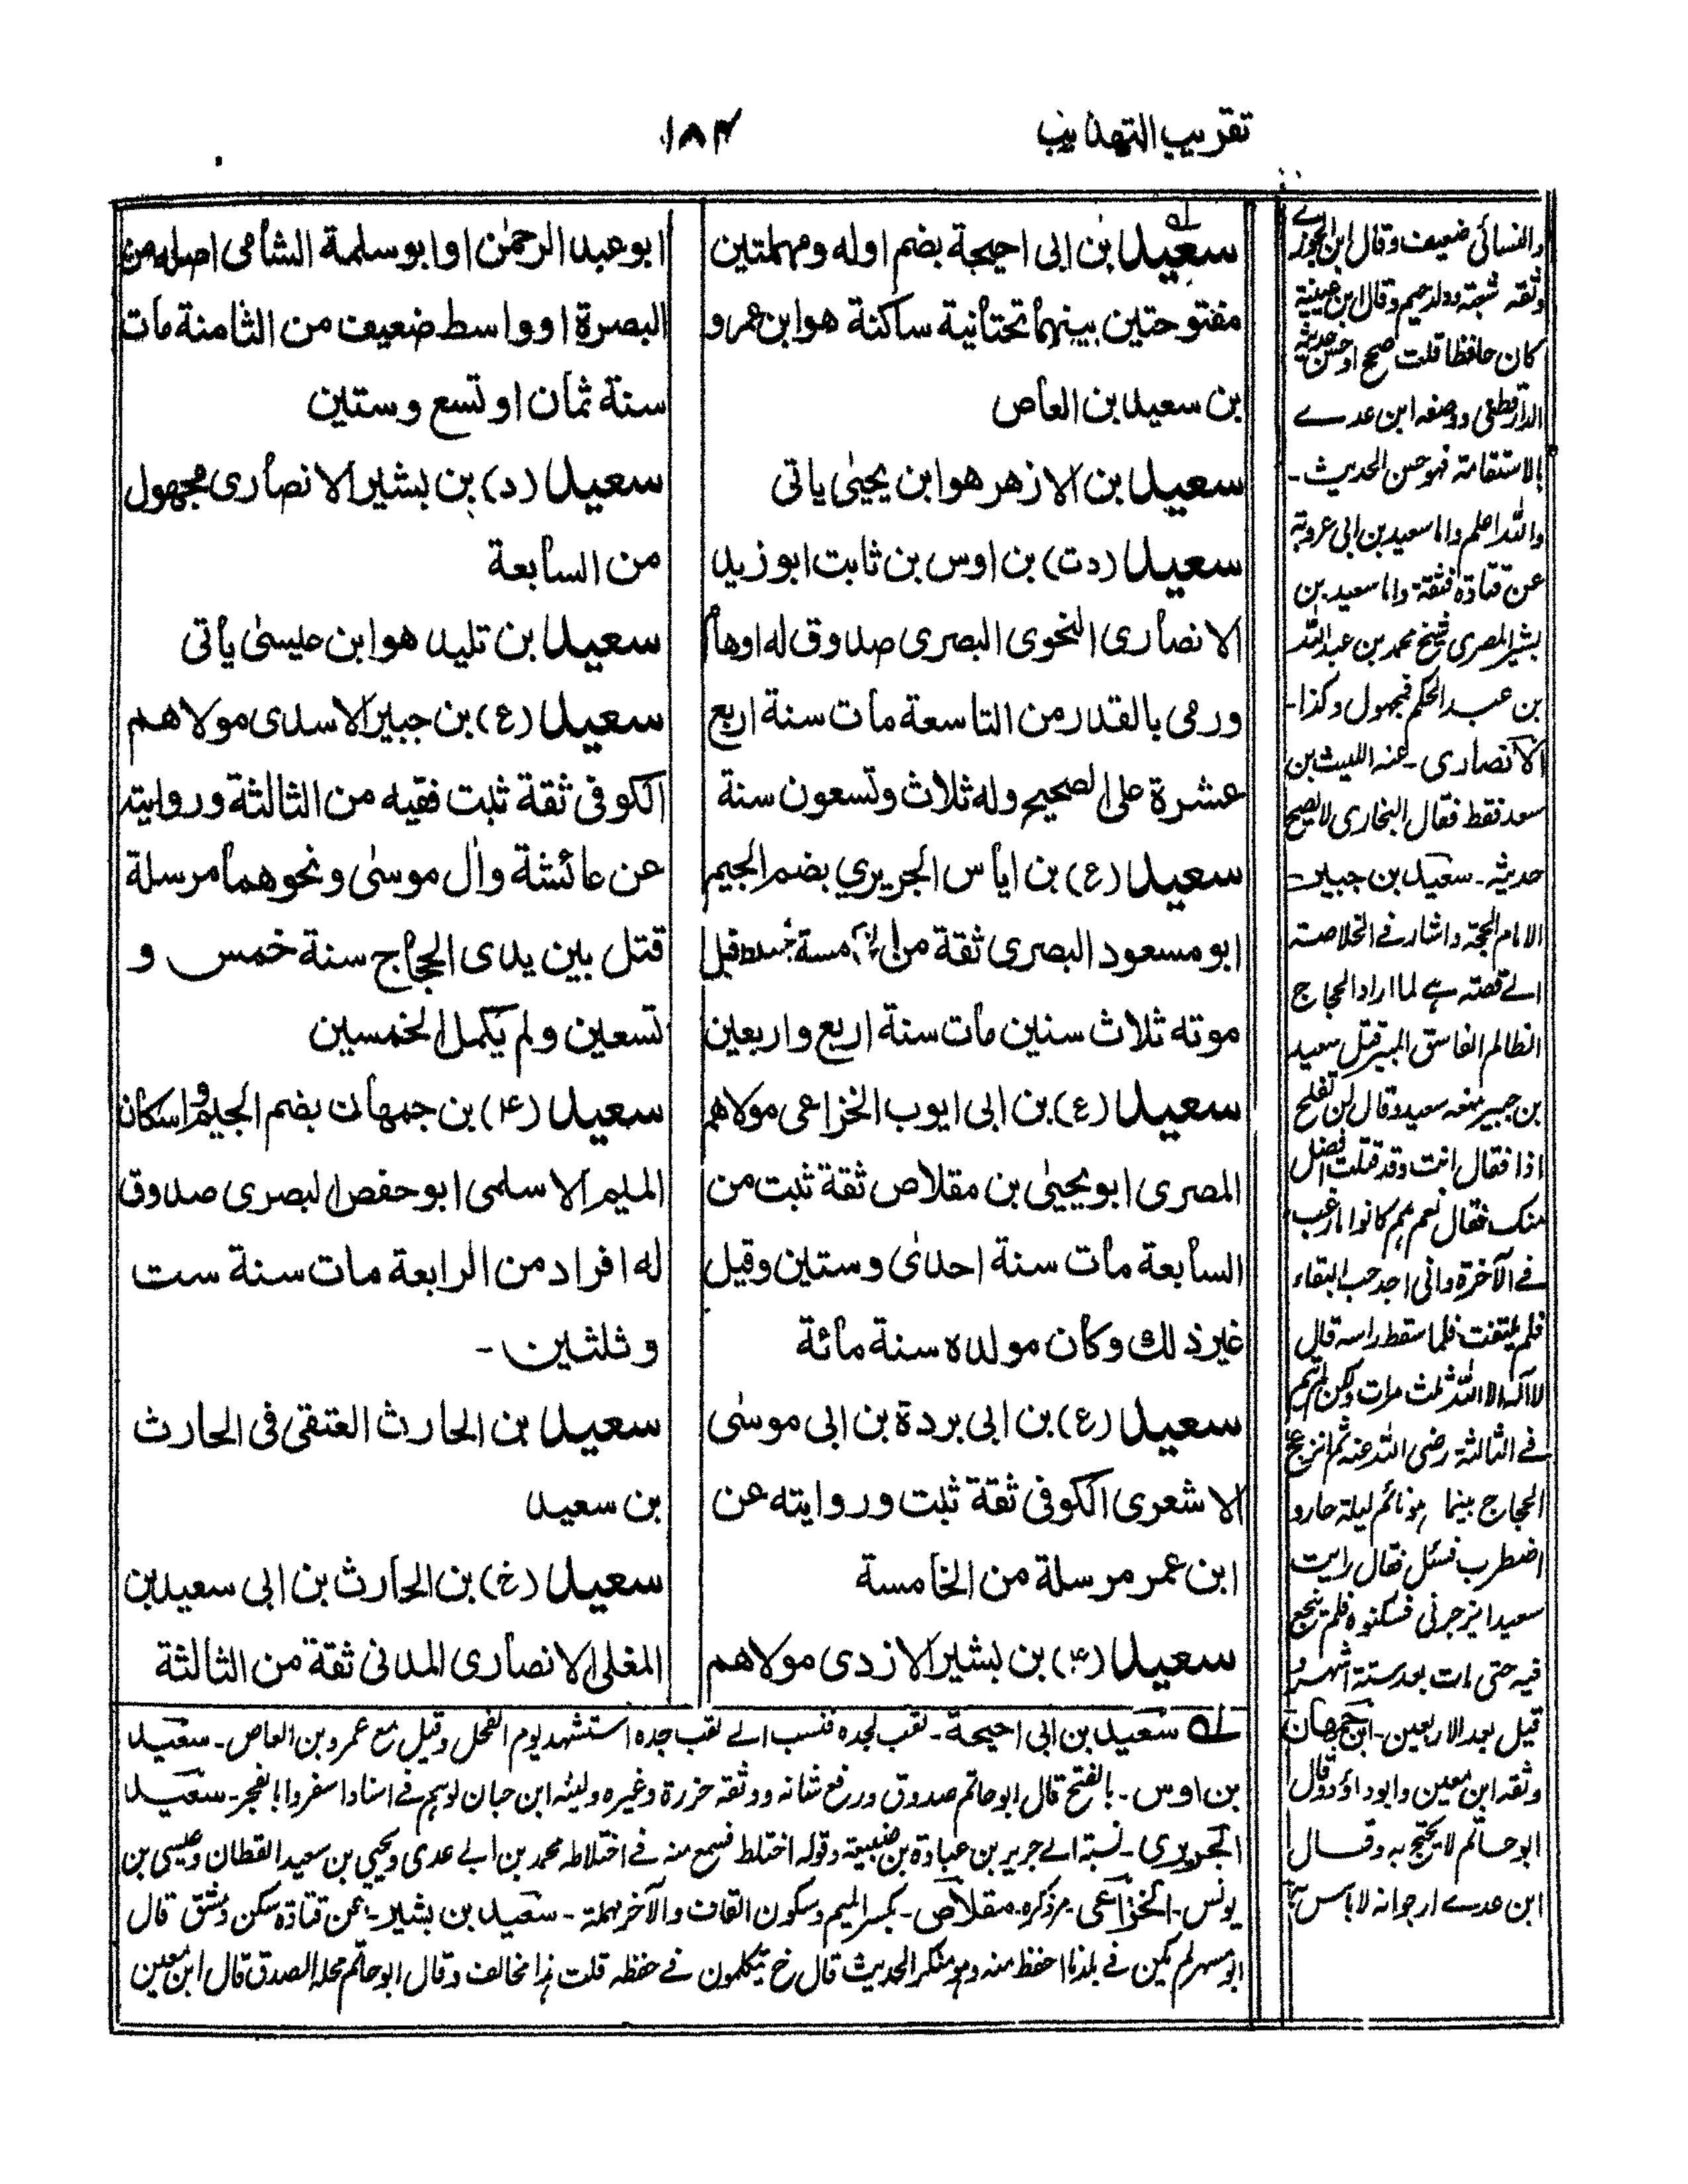 تقريب التهذيب
١٨٤
سعيد بن ابى احيحة بضم اوله ومهملتين
مفتوحتين بينهما تحتانية ساكنة هو ابن عمرو
بن سعيد بن العاص
سعيد بن الازهر هو ابن يحيىٰ ياتى
سعيد (دت) بن اوس بن ثابت ابو زيد
الانصارى النحوى البصرى صدوق له اوهام
ورمى بالقدر من التاسعة مات سنة اربع
عشرة على الصحيح وله ثلاث وتسعون سنة
سعيد (ع) بن اياس الجريري بضم الجيم
ابو مسعود البصرى ثقة من الخامسة قبل
موته ثلاث سنين مات سنة اربع واربعين
سعيد (ع) بن ابى ايوب الخزاعى مولاهم
المصرى ابو يحيىٰ بن مقلاص ثقة ثبت من
السابعة مات سنة احدىٰ وستين وقيل
غير ذلك وكان مولده سنة مائة
سعيد (ع) بن ابى بردة بن ابى موسىٰ
الاشعرى الكوفى ثقة ثبت وروايته عن
ابن عمر مرسلة من الخامسة
سعيد (۴) بن بشير الازدى مولاهم
ابو عبد الرحمٰن او ابو سلمة الشامى اصله من
البصرة او واسط ضعيف من الثامنة مات
سنة ثمان او تسع وستين
سعيد (د) بن بشير الانصارى مجهول
من السابعة
سعيد بن تليد هو ابن عيسىٰ ياتى
سعيد (ع) بن جبير الاسدى مولاهم
الكوفى ثقة ثبت فقيه من الثالثة وروايته
عن عائشة وال موسىٰ ونحوهما مرسلة
قتل بين يدى الحجاج سنة خمس و
تسعين ولم يكمل الخمسين
سعيد (۴) بن جمهان بضم الجيم واسكان
الميم الاسلمى ابو حفص البصرى صدوق
له افراد من الرابعة مات سنة ست
وثلثين -
سعيد بن الحارث العتقى فى الحارث
بن سعيد
سعيد (خ) بن الحارث بن ابى سعيد بن
المعلى الانصارى المدنى ثقة من الثالثة
والنسائى ضعيف وقال ابن الجوزے
وثقه شعبة ودحيم وقال ابن عيينة
كان حافظا قلت صحح او حسن حديثه
الدارقطنى ووصفه ابن عدے
بالاستقامة فهو حسن الحديث -
والله اعلم واما سعيد بن ابى عروبة
عن قتادة فثقة واما سعيد بن
بشير المصرى شيخ محمد بن عبد الله
بن عبد الحكم فمجهول وكذا -
الانصارى - عنه الليث بن
سعد فقط فقال البخارى لا يصح
حديثه - سعيد بن جبير
الامام الحجة واشار فے الخلاصة
الے قصته هے لما اراد الحجاج
الظالم الفاسق المبير قتل سعيد
بن جبير منعه سعيد وقال لن تفلح
اذا فقال انت وقد قتلت افضل
منك فقال نعم هم كانوا ارغب
فے الآخرة وانى اجد حب البقاء
فلم يلتفت فلما سقط راسه قال
لا اله الا الله ثلث مرات ولكن لم يتم
فے الثالثة رضى الله عنه ثم انزعج
الحجاج بينما هو نائم ليلة حار و
اضطرب فسئل فقال رايت
سعيدا يزجرنى فسكنوه فلم ينجع
فيه حتى مات بعد ستة اشهر و
قيل بعد الاربعين - ابن جمهان
وثقه ابن معين وابو داؤد وقال
ابو حاتم لا يحتج به وقال
ابن عدے ارجو انه لا باس به
لہ سعيد بن ابى احيحة - لقب لجده فنسب الے لقب جده استشهد يوم الفحل وقيل مع عمرو بن العاص - سعيد
بن اوس - بالفتح قال ابو حاتم صدوق ورفع شانه ووثقه جزرة وغيره ولينه ابن حبان لوهم فے اسناد اسفروا بالفجر - سعيد
الجريرى - نسبة الے جرير بن عبادة بن ضبيعة وقوله اختلط فسمع منه فے اختلاطه محمد بن ابے عدى ويحيى بن سعيد القطان وعيسى بن
يونس - الخزاعى - مر ذكره - مقلاص - بكسر الميم وسكون القاف والآخر مهملة - سعيد بن بشير - عن قتادة سكن دمشق قال
ابو مسهر لم يكن فے بلدنا احفظ منه وهو منكر الحديث قال خ يتكلمون فے حفظه قلت هذا مخالف وقال ابو حاتم محله الصدق قال ابن معين